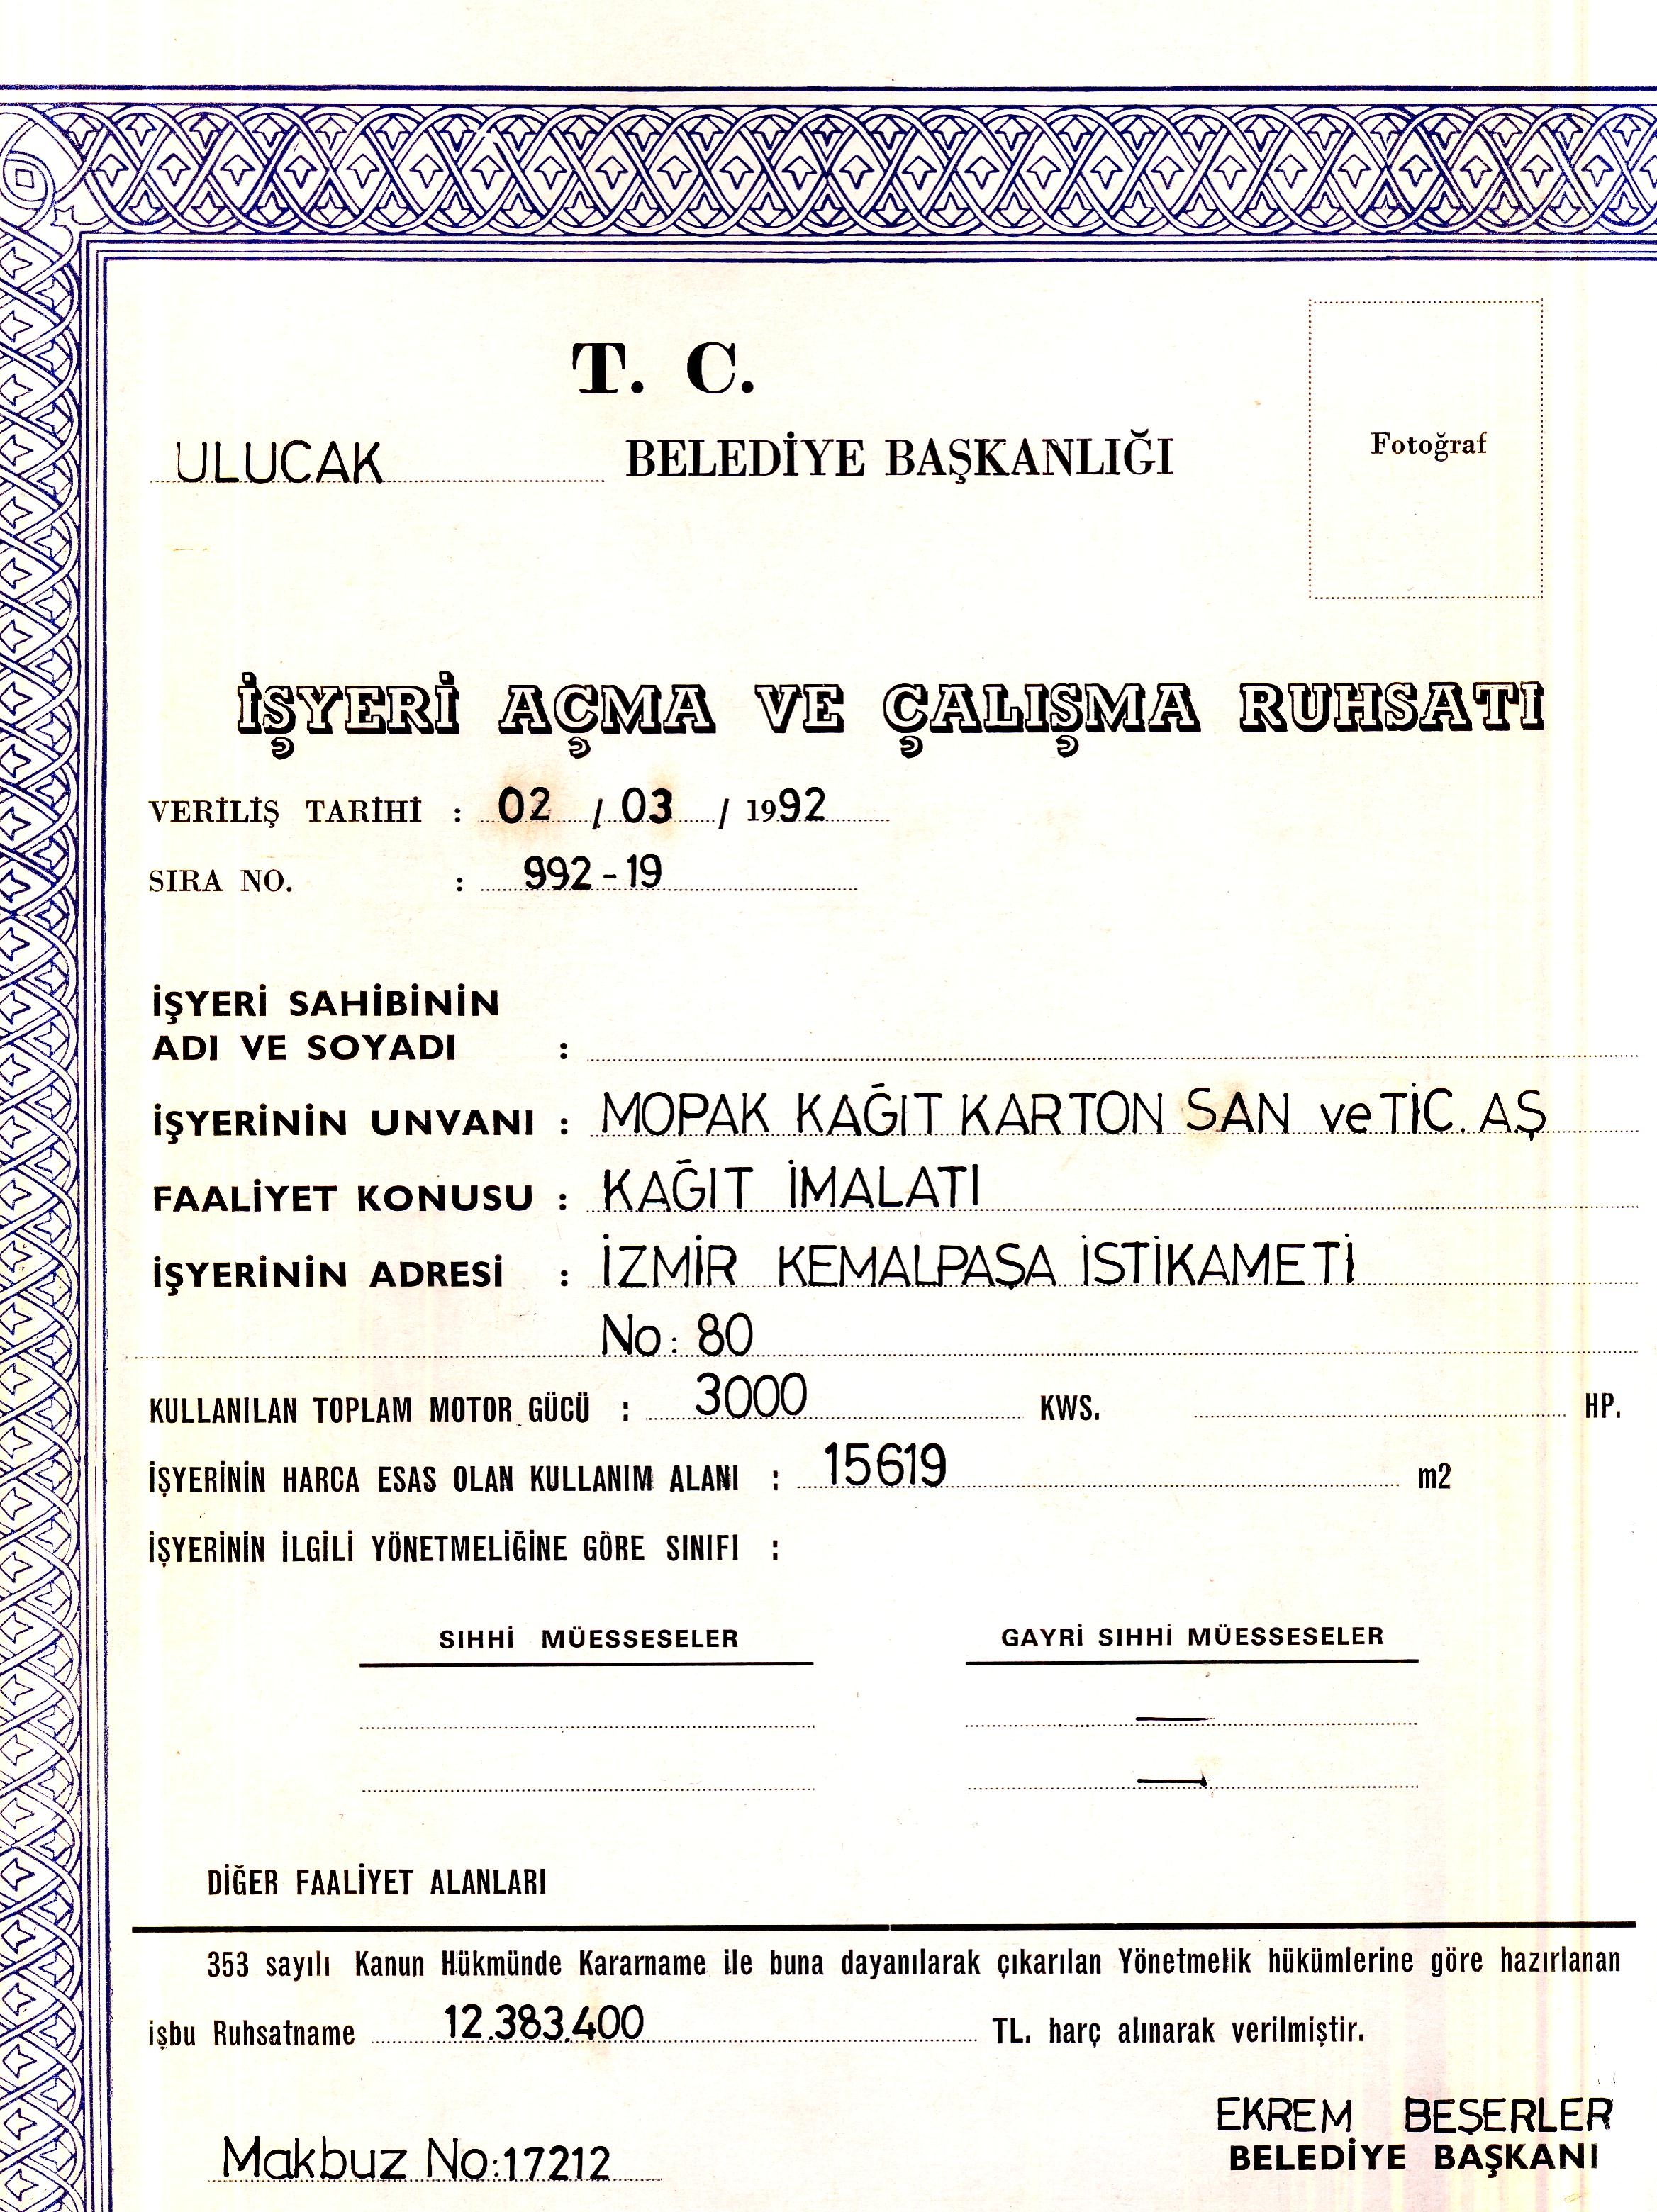 T. C.
ULUCAK BELEDİYE BAŞKANLIĞI
Fotoğraf
İŞYERİ AÇMA VE ÇALIŞMA RUHSATI
VERİLİŞ TARİHİ : 02 / 03 / 1992
SIRA NO. : 992-19
İŞYERİ SAHİBİNİN
ADI VE SOYADI :
İŞYERİNİN UNVANI : MOPAK KAĞIT KARTON SAN ve TİC. AŞ
FAALİYET KONUSU : KAĞIT İMALATI
İŞYERİNİN ADRESİ : İZMİR KEMALPAŞA İSTİKAMETİ
No: 80
KULLANILAN TOPLAM MOTOR GÜCÜ : 3000 KWS. HP.
İŞYERİNİN HARCA ESAS OLAN KULLANIM ALANI : 15619 m2
İŞYERİNİN İLGİLİ YÖNETMELİĞİNE GÖRE SINIFI :
SIHHİ MÜESSESELER GAYRİ SIHHİ MÜESSESELER
DİĞER FAALİYET ALANLARI
353 sayılı Kanun Hükmünde Kararname ile buna dayanılarak çıkarılan Yönetmelik hükümlerine göre hazırlanan
işbu Ruhsatname 12.383.400 TL. harç alınarak verilmiştir.
EKREM BEŞERLER
Makbuz No:17212 BELEDİYE BAŞKANI